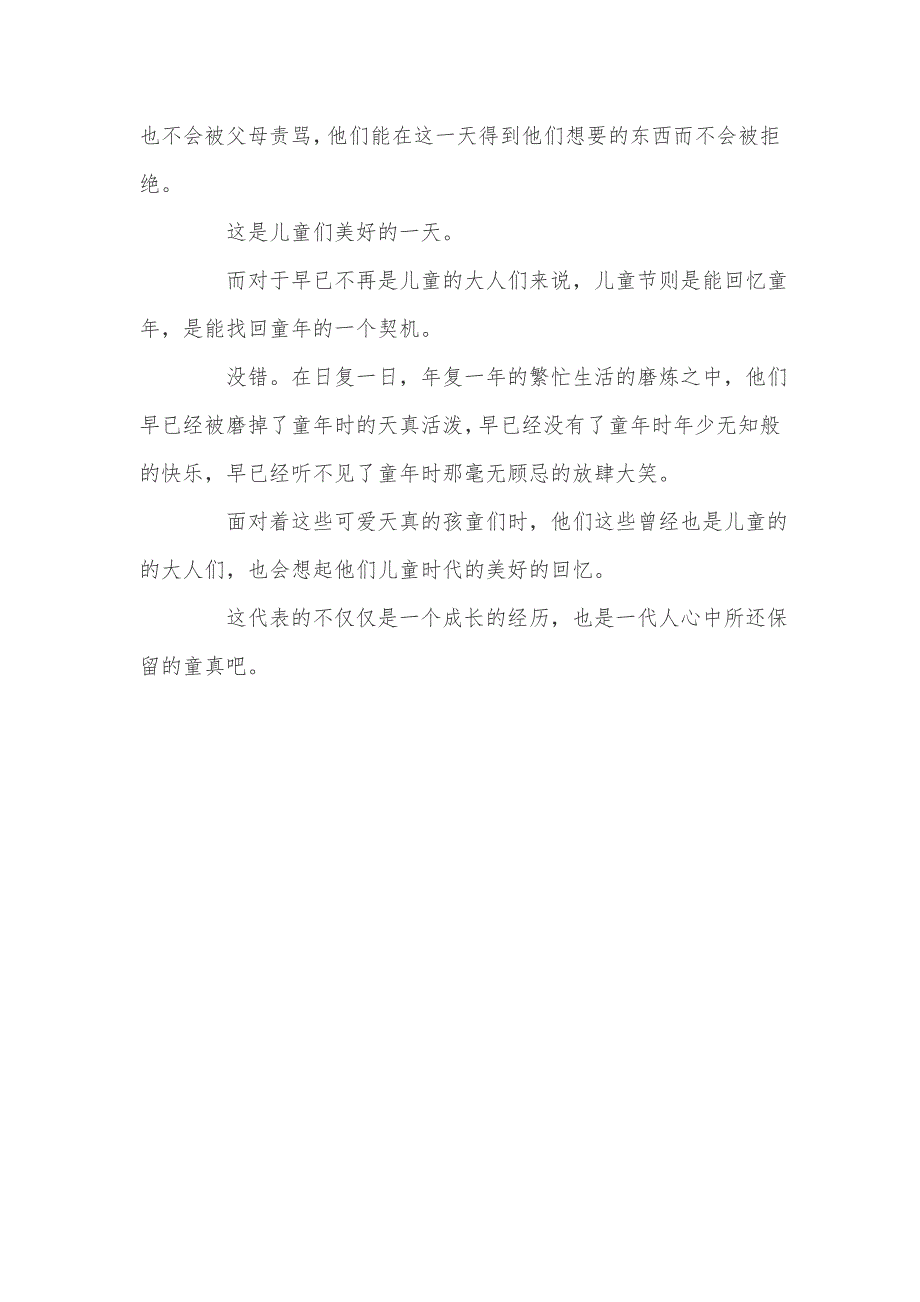 也不会被父母责骂,他们能在这一天得到他们想要的东西而不会被拒
绝。
这是儿童们美好的一天。
而对于早已不再是儿童的大人们来说，儿童节则是能回忆童
年，是能找回童年的一个契机。
没错。在日复一日，年复一年的繁忙生活的磨炼之中，他们
早已经被磨掉了童年时的天真活泼,早已经没有了童年时年少无知般
的快乐，早已经听不见了童年时那毫无顾忌的放肆大笑。
面对着这些可爱天真的孩童们时，他们这些曾经也是儿童的
的大人们，也会想起他们儿童时代的美好的回忆。
这代表的不仅仅是一个成长的经历，也是一代人心中所还保
留的童真吧。